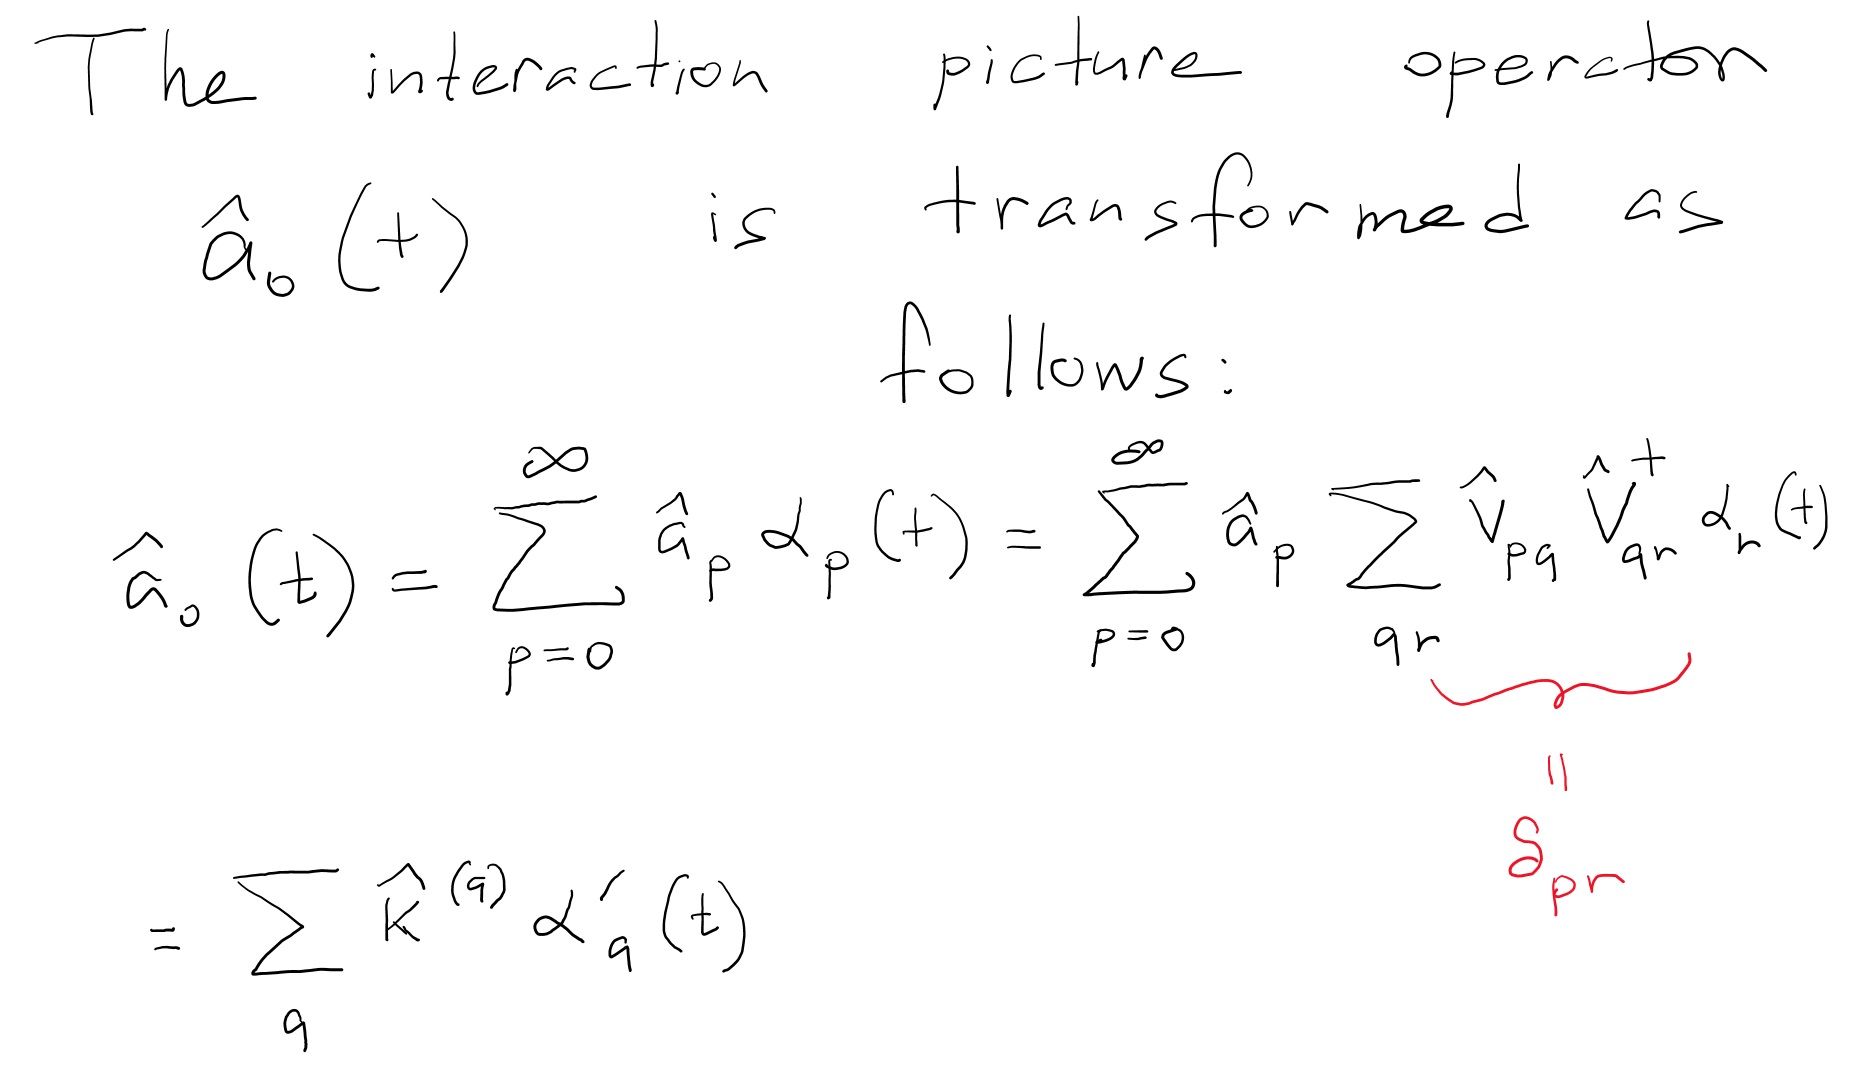 The interaction picture operator
â₀(t) is transformed as
follows:
â₀(t) = ∑_{p=0}^{∞} â_p α_p(t) = ∑_{p=0}^{∞} â_p ∑_{qr} V̂_{pq} V̂†_{qr} α_r(t)
= δ_{pr}
= ∑_q K̂^{(q)} α′_q(t)